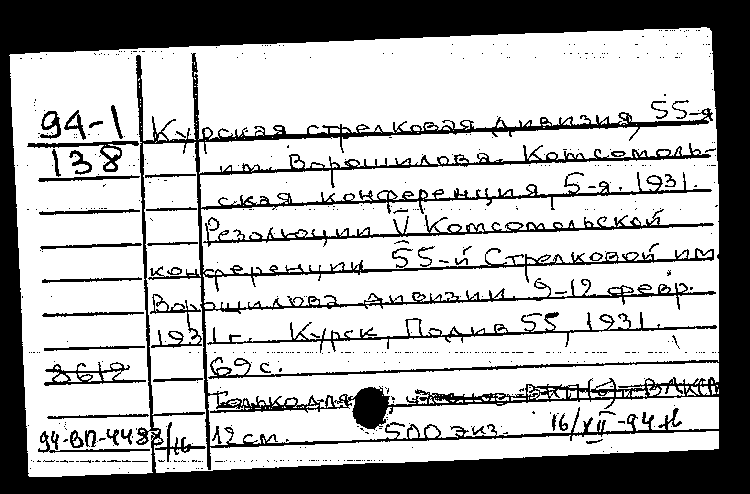 94-1 Курская стрелковая дивизия, 55-я
138 им. Ворошилова. Комсомоль-
ская конференция, 5-я. 1931.
Резолюции V Комсомольской
конференции 55-й Стрелковой им.
Ворошилова дивизии. 9-12 февр.
1931 г. Курск, Подив 55, 1931.
8612 69 с.
Только для членов ВКП(б) и ВЛКСМ
94-ВП-4488/16 12 см. 500 экз. 16/XII-94